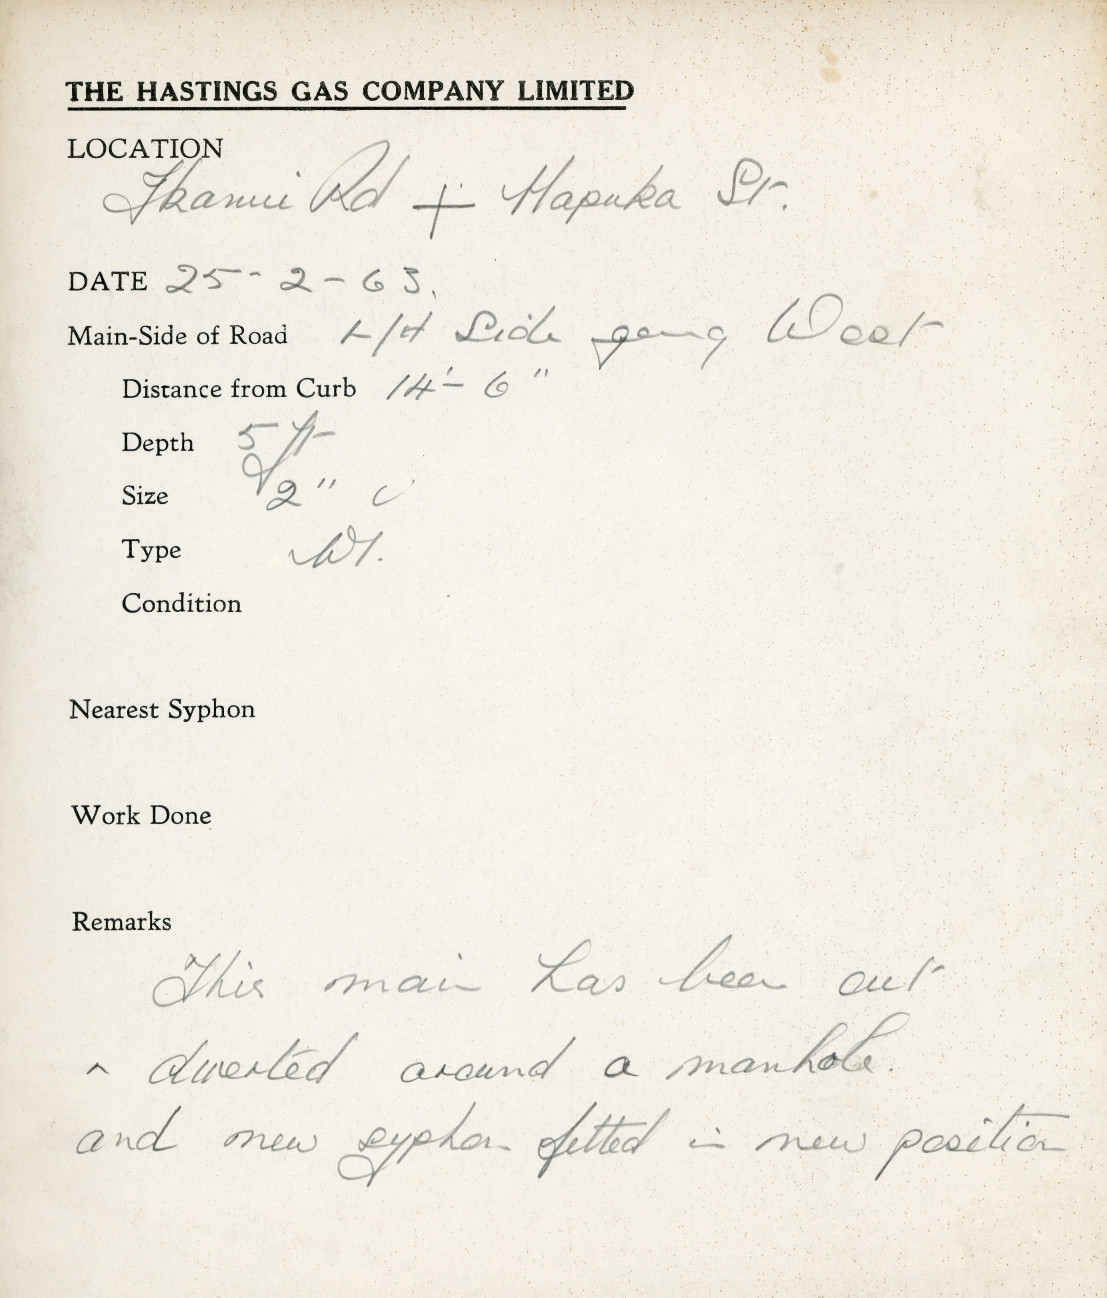 THE HASTINGS GAS COMPANY LIMITED
LOCATION
Ikanui Rd + Hapuka St.
DATE 25-2-63.
Main-Side of Road L/H Side going West
Distance from Curb 14'-6"
Depth 5 ft
Size 2"
Type W.I.
Condition
Nearest Syphon
Work Done
Remarks
This main has been cut
^ diverted around a manhole.
and new syphon fitted in new position